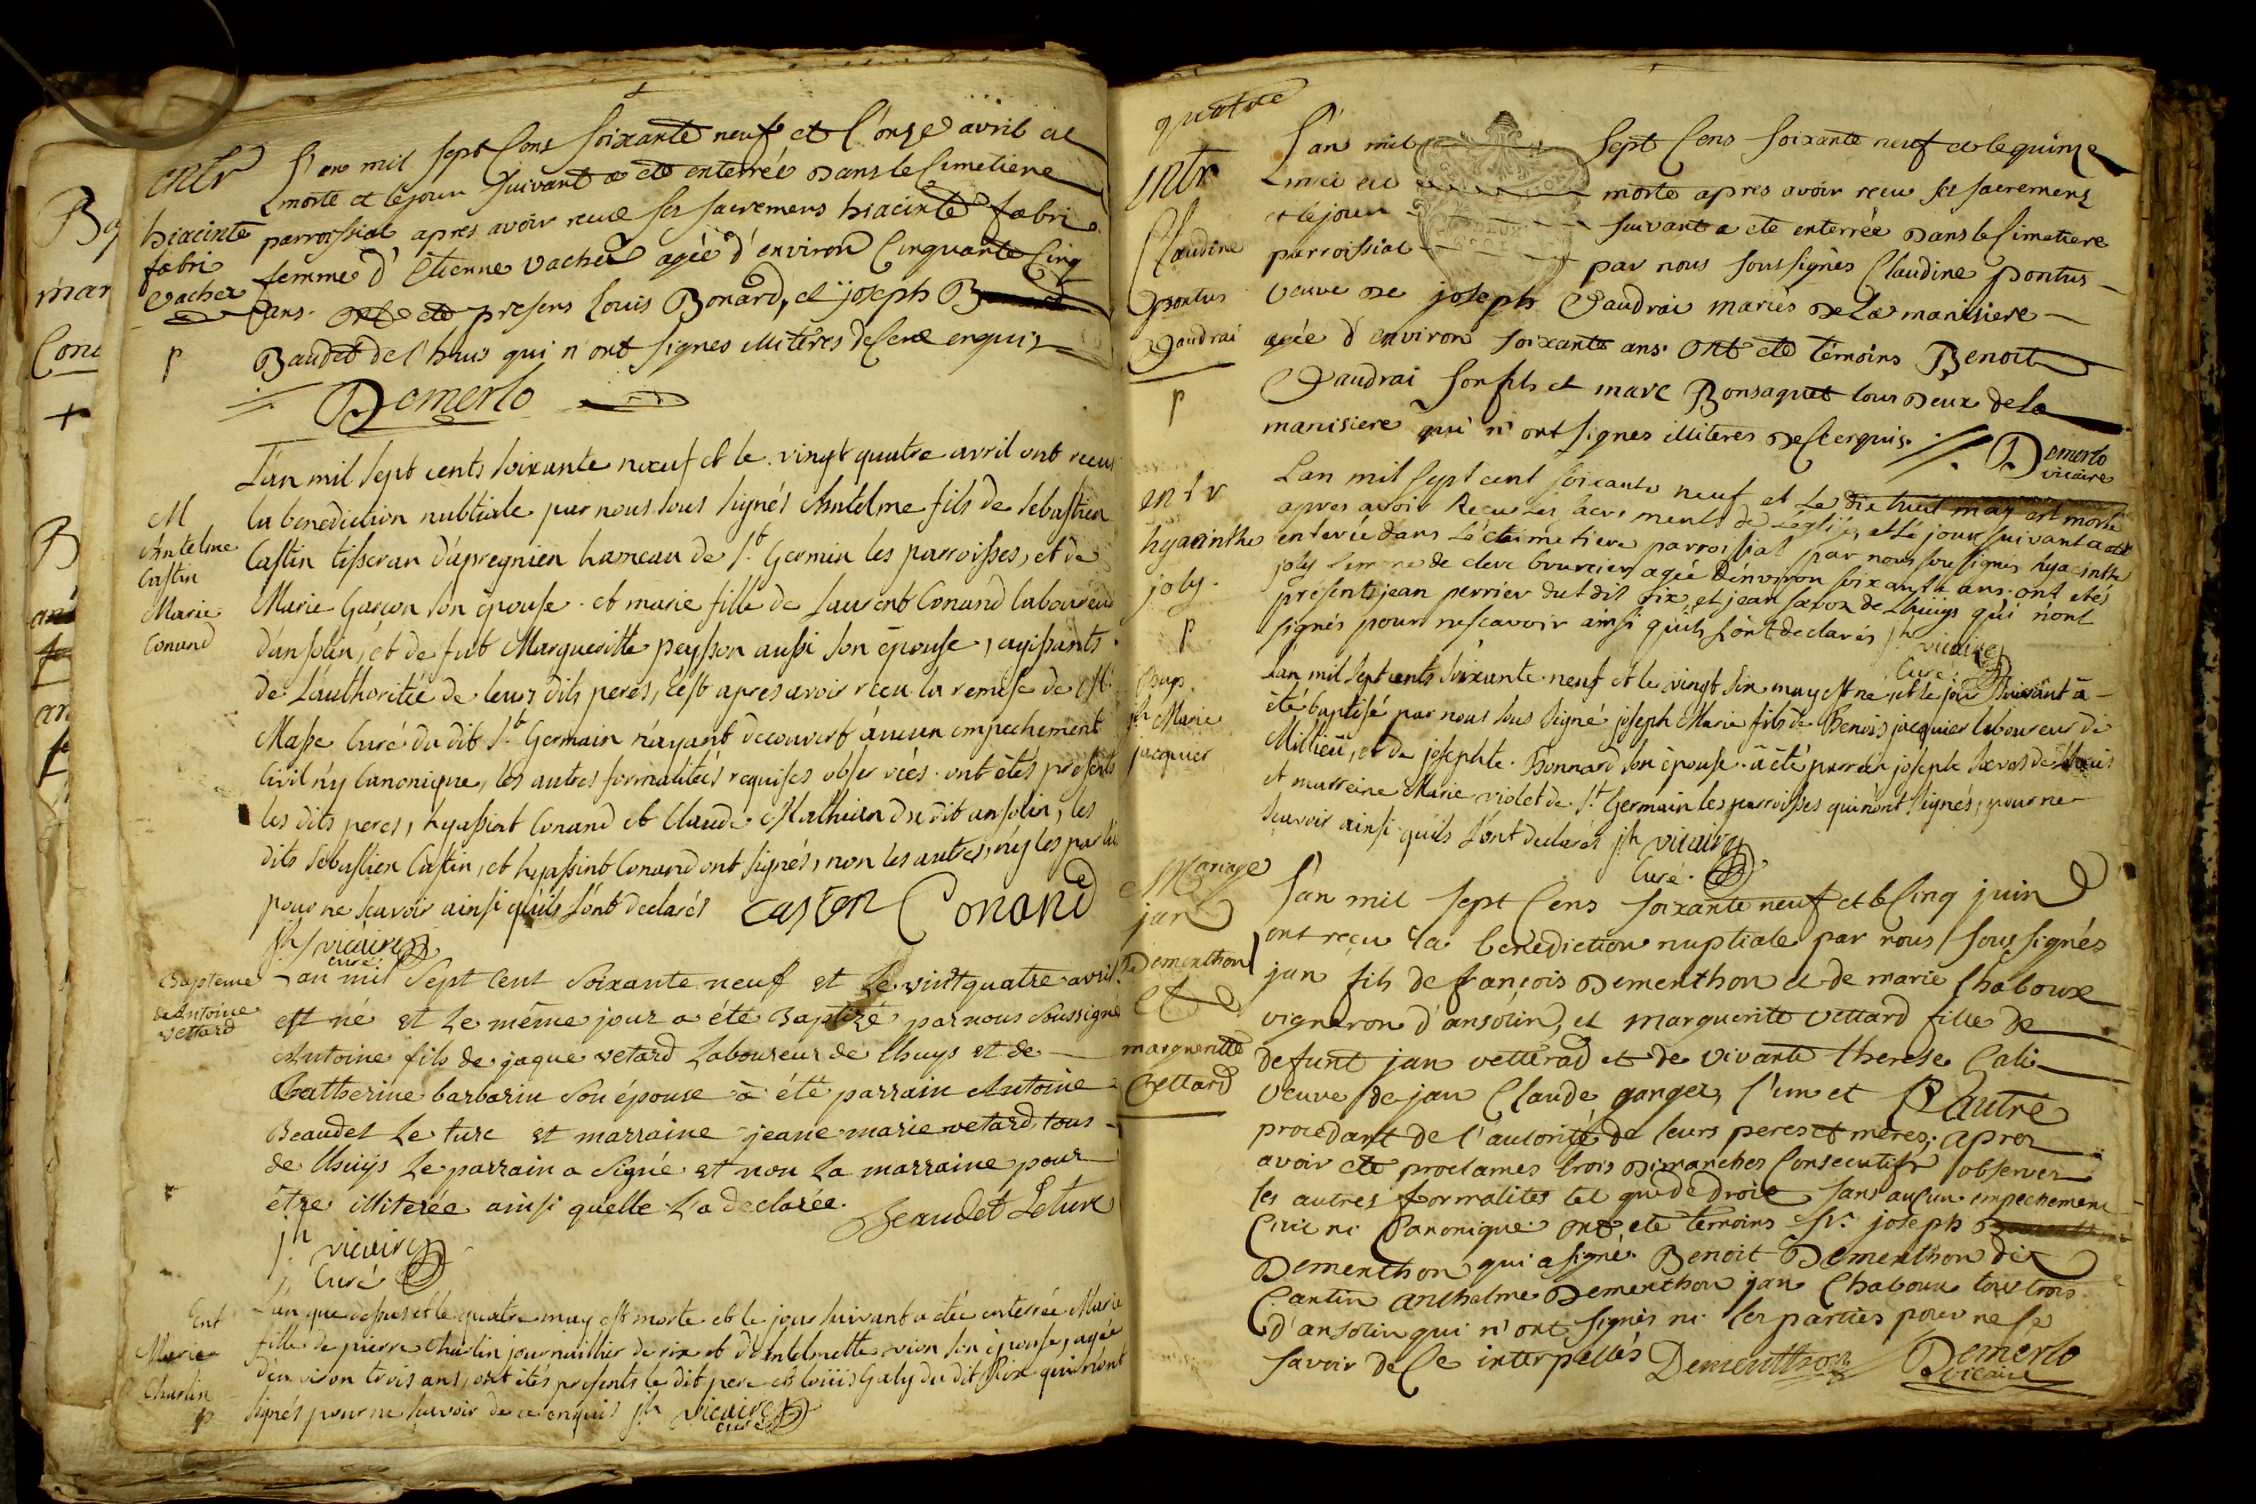 entr
hiacinte
fabri
vacher
p
L'an mil sept cens soixante neuf et l'onze avril est
morte et lejour suivant a été enterrée dans le cimetiere
parroissial apres avoir reçue ses sacremens hiacinte fabri
femme d'etienne vacher agée d'environ cinquante cinq
ans. ont été presens louis Bonard, et joseph
Baudet de l'huis qui n'ont signes illiterés de ce enquis
Demerlo
M
Antelme
Castin
Marie
Conand
L'an mil sept cents soixante neuf et le vingt quatre avril ont reçus
la benediction nubtiale par nous sous signés Antelme fils de sebastien
Castin tisseran d'apregnien hameau de st Germin les parroisses, et de
Marie Garçon son épouse. et marie fille de Laurent Conand laboureur
d'ansolin, et de fut Margueritte peysson aussi son épouse, agissants
de L'authoritée de leurs dits peres, c'est apres avoir reçu la remise de Mr
Masse Curé du dit st Germain n'ayant decouvert aucun empechement
Civil n'y Canonique, les autres formalitées requises observées. ont étés présents
les dits peres, hyassint Conand et Claude Mathian du dit ansolin, les
dits sebastien Castin, et hyassint Conand ont signés, non les autres, n'y les parties
pour ne sçavoir ainsi qu'ils l'ont declarés castin Conand
jh vicaire
curé
Bapteme
de Antoine
vettard
Lan mil sept cent soixante neuf et le vintquatre avril
est né et le même jour a été Baptizé par nous soussigné
Antoine fils de jaque vetard Laboureur de Lhuys et de
Catherine barbarin son épouse a été parrain Antoine
Beaudet le turc et marraine jeane marie vetard tous
de Lhuijs Le parrain a signé et non la marraine pour
être illiterée ainsi quelle La declarée. Beaudet Leture
jh vicaire
Curé
Ent
Marie
Charlin
p
L'an que dessus et le quatre may est morte et le jour suivant a étée enterrée Marie
fille de pierre Charlin journaillier de rix et d'antelmette vion son épouse, agée
d'environ trois ans, ont étés presents le dit pere et loüis Galy du dit Rix qui n'ont
signés pour ne sçavoir de ce enquis jh vicaire
curé
quatre
intr
Claudine
pontus
Vaudrai
p
L'an mil sept cens soixante neuf et le quinze
mai est morte apres avoir reçu ses sacremens
et le jour suivant a été enterrée dans le cimetiere
parroissial par nous soussignés Claudine pontus
veuve de joseph Vaudrai mariés de la manisiere
agée d'environ soixante ans. ont été temoins Benoit
Vaudrai son fils et marc Bonsaquet tous deux de la
manisiere qui n'ont signes illiteres de ce enquis. Demerlo
vicaire
entr
hyacinthe
joly.
p
Lan mil sept cent soixante neuf et le dix huit may est morte
apres avoir Reçu les sacrements de L'église, et le jour suivant a eté
enterée dans le cimetiere parroissial par nous sous signés hyacinthe
joly femme de claude bourcier agée d'environ soixante ans. ont etés
présents jean perrier dud dit rix, et jean savoz de Lhuijs qui n'ont
signés pour ne scavoir ainsi qu'ils l'ont declarés jh vicaire
Curé
Bap.
jh Marie
jacquier
L'an mil sept cents soixante neuf et le vingt six may est né, et le jour suivant a
été baptisé par nous sous signé joseph Marie fils de Benois jacquier laboureur de
Millieü, et de josephte Bonnard son épouse. a été parrain joseph savos de lhuis
et marreine Marie violet de st Germain les parroisses qui n'ont signés, pour ne
sçavoir ainsi qu'ils l'ont declarés jh vicaire
Curé.
Mariage
jan
Dementhon
Et
margueritte
Vettard
L'an mil sept cens soixante neuf et le cinq juin
ont reçu la benediction nuptiale par nous soussignés
jan fils de françois Dementhon et de marie Chaboux
vigneron d'ansolin, et marguerite vettard fille de
defunt jan vetterad et de vivante therese Gali
veuve de jan Claude ganget, l'un et L'autre
procedant de l'autorité de leurs peres et meres; apres
avoir été proclames trois Dimanches Consecutifs observer
les autres formalites tel que de droit sans aucun empechement
Civil ni Canonique. ont été temoins sr. joseph
Dementhon qui a signé. Benoit Dementhon dit
Cantin anthelme Dementhon jan Chaboux tous trois
d'ansolin qui n'ont signés ni les parties pour ne le
savoir de ce interpellés Dementthon Demerlo
vicaire